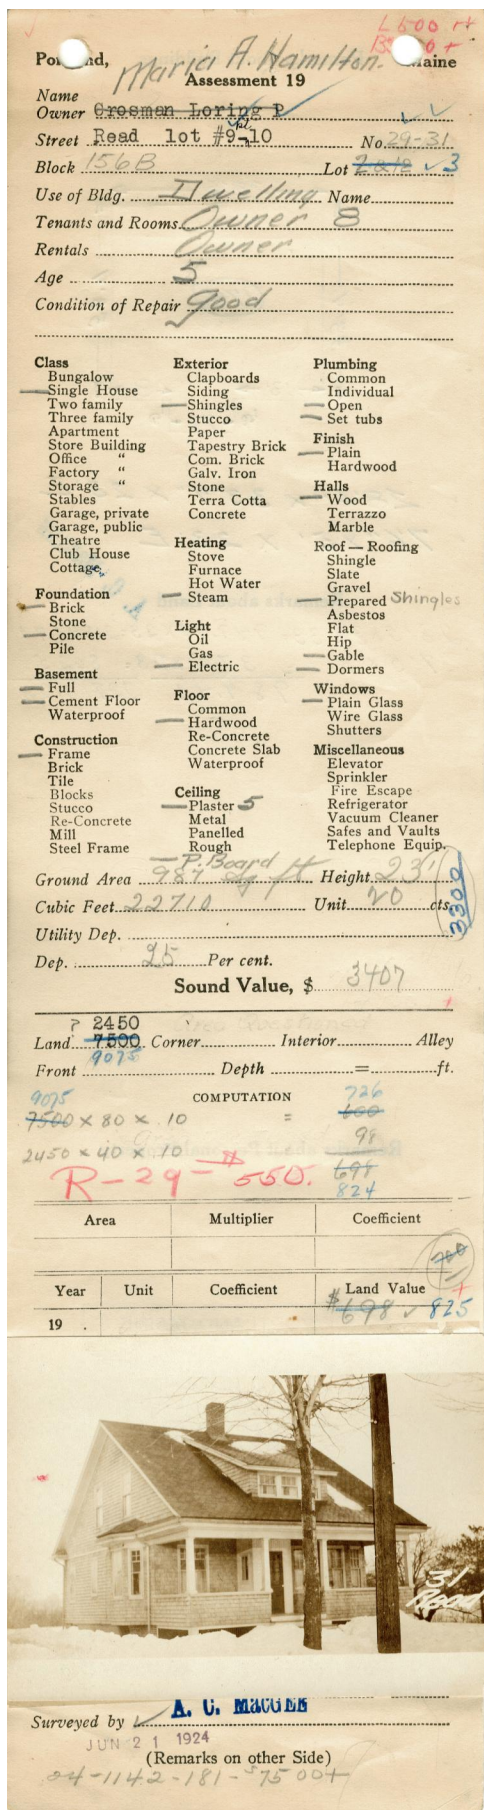 L 500 ++
Portland, Maine
Maria A. Hamilton.
Assessment 19
Name
Owner Crosman Loring P
Street Read lot #9-10 No. 29-31
Block 156B Lot 2 & 18 ✓ 3
Use of Bldg. Dwelling Name
Tenants and Rooms Owner 8
Rentals Owner
Age 5
Condition of Repair good
Class
Bungalow
Single House
Two family
Three family
Apartment
Store Building
Office "
Factory "
Storage "
Stables
Garage, private
Garage, public
Theatre
Club House
Cottage
Foundation
Brick
Stone
Concrete
Pile
Basement
Full
Cement Floor
Waterproof
Construction
Frame
Brick
Tile
Blocks
Stucco
Re-Concrete
Mill
Steel Frame
Exterior
Clapboards
Siding
Shingles
Stucco
Paper
Tapestry Brick
Com. Brick
Galv. Iron
Stone
Terra Cotta
Concrete
Heating
Stove
Furnace
Hot Water
Steam
Light
Oil
Gas
Electric
Floor
Common
Hardwood
Re-Concrete
Concrete Slab
Waterproof
Ceiling
Plaster 5
Metal
Panelled
Rough
P. Board
Plumbing
Common
Individual
Open
Set tubs
Finish
Plain
Hardwood
Halls
Wood
Terrazzo
Marble
Roof — Roofing
Shingle
Slate
Gravel
Prepared Shingles
Asbestos
Flat
Hip
Gable
Dormers
Windows
Plain Glass
Wire Glass
Shutters
Miscellaneous
Elevator
Sprinkler
Fire Escape
Refrigerator
Vacuum Cleaner
Safes and Vaults
Telephone Equip.
Ground Area 987 sq ft Height 23'
Cubic Feet 22710 Unit 20 cts.
3300
Utility Dep.
Dep. 25 Per cent.
Sound Value, $ 3407
? 2450
Land 7500 Corner Interior Alley
9075
Front Depth = ft.
COMPUTATION
9075 726
7500 x 80 x .10 = 600
98
2450 x 40 x 10
698
R-29-$550. 824
Area Multiplier Coefficient
700
Year Unit Coefficient Land Value
19 . $ 698 ✓ 825
31
Read
Surveyed by A. C. MacGEE
JUN 21 1924
(Remarks on other Side)
24-1142-181-$7500+